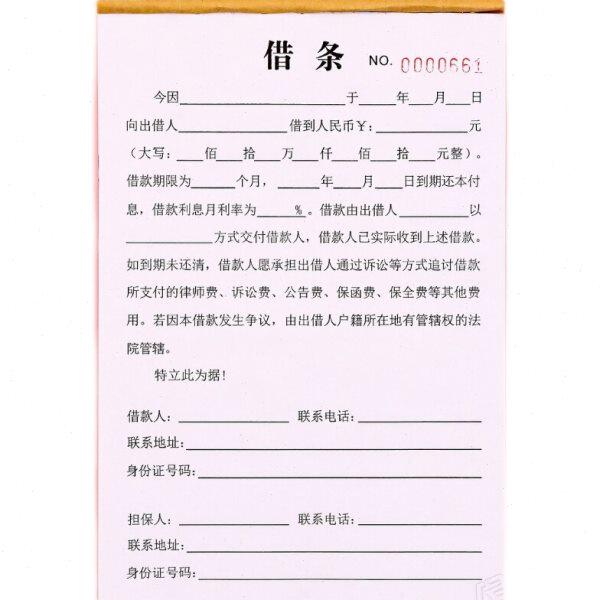 借条 NO. 0000661
今因____________于____年___月___日
向出借人____________借到人民币￥：____________元
（大写：___佰___拾___万___仟___佰___拾___元整）。
借款期限为_____个月，_____年____月____日到期还本付
息，借款利息月利率为_____%。借款由出借人________以
__________方式交付借款人，借款人已实际收到上述借款。
如到期未还清，借款人愿承担出借人通过诉讼等方式追讨借款
所支付的律师费、诉讼费、公告费、保函费、保全费等其他费
用。若因本借款发生争议，由出借人户籍所在地有管辖权的法
院管辖。
特立此为据！
借款人：____________ 联系电话：____________
联系地址：______________________________
身份证号码：______________________________
担保人：____________ 联系电话：____________
联系地址：______________________________
身份证号码：______________________________